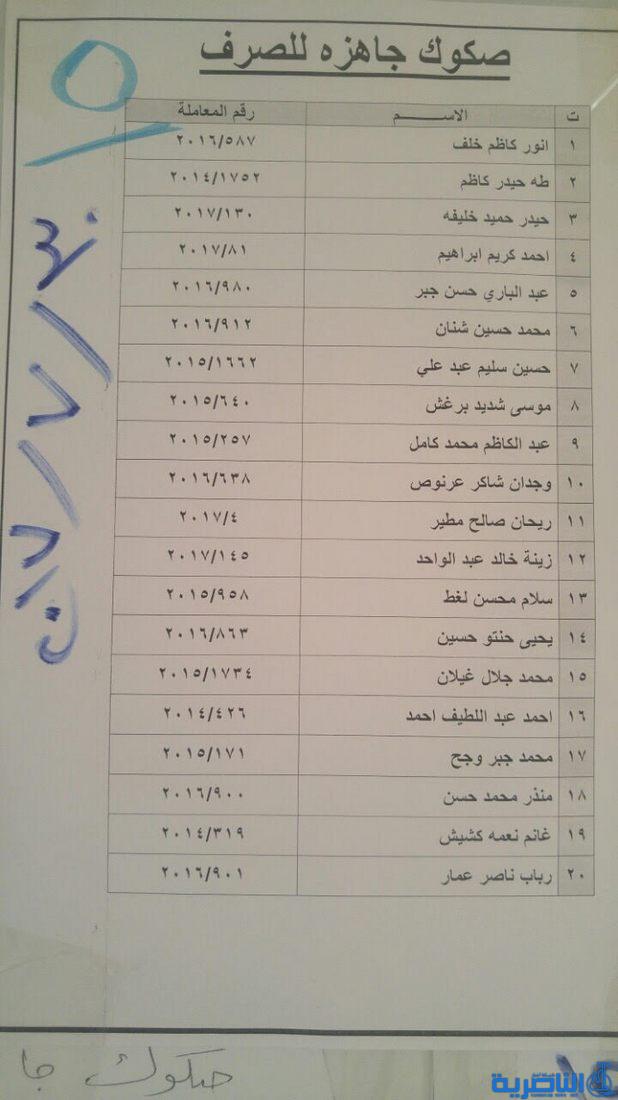 صكوك جاهزه للصرف
ت الاســـــم رقم المعاملة
١ انور كاظم خلف ٢٠١٦/٥٨٧
٢ طه حيدر كاظم ٢٠١٤/١٧٥٢
٣ حيدر حميد خليفه ٢٠١٧/١٣٠
٤ احمد كريم ابراهيم ٢٠١٧/٨١
٥ عبد الباري حسن جبر ٢٠١٦/٩٨٠
٦ محمد حسين شنان ٢٠١٦/٩١٢
٧ حسين سليم عبد علي ٢٠١٥/١٦٦٢
٨ موسى شديد برغش ٢٠١٥/٦٤٠
٩ عبد الكاظم محمد كامل ٢٠١٥/٢٥٧
١٠ وجدان شاكر عرنوص ٢٠١٦/٦٣٨
١١ ريحان صالح مطير ٢٠١٧/٤
١٢ زينة خالد عبد الواحد ٢٠١٧/١٤٥
١٣ سلام محسن لغط ٢٠١٥/٩٥٨
١٤ يحيى حنتو حسين ٢٠١٦/٨٦٣
١٥ محمد جلال غيلان ٢٠١٥/١٧٣٤
١٦ احمد عبد اللطيف احمد ٢٠١٤/٤٢٦
١٧ محمد جبر وجح ٢٠١٥/١٧١
١٨ منذر محمد حسن ٢٠١٦/٩٠٠
١٩ غانم نعمه كشيش ٢٠١٤/٣١٩
٢٠ رباب ناصر عمار ٢٠١٦/٩٠١
٥
٢٠١٧/٧/٣٠
صكوك جا
الناصرية